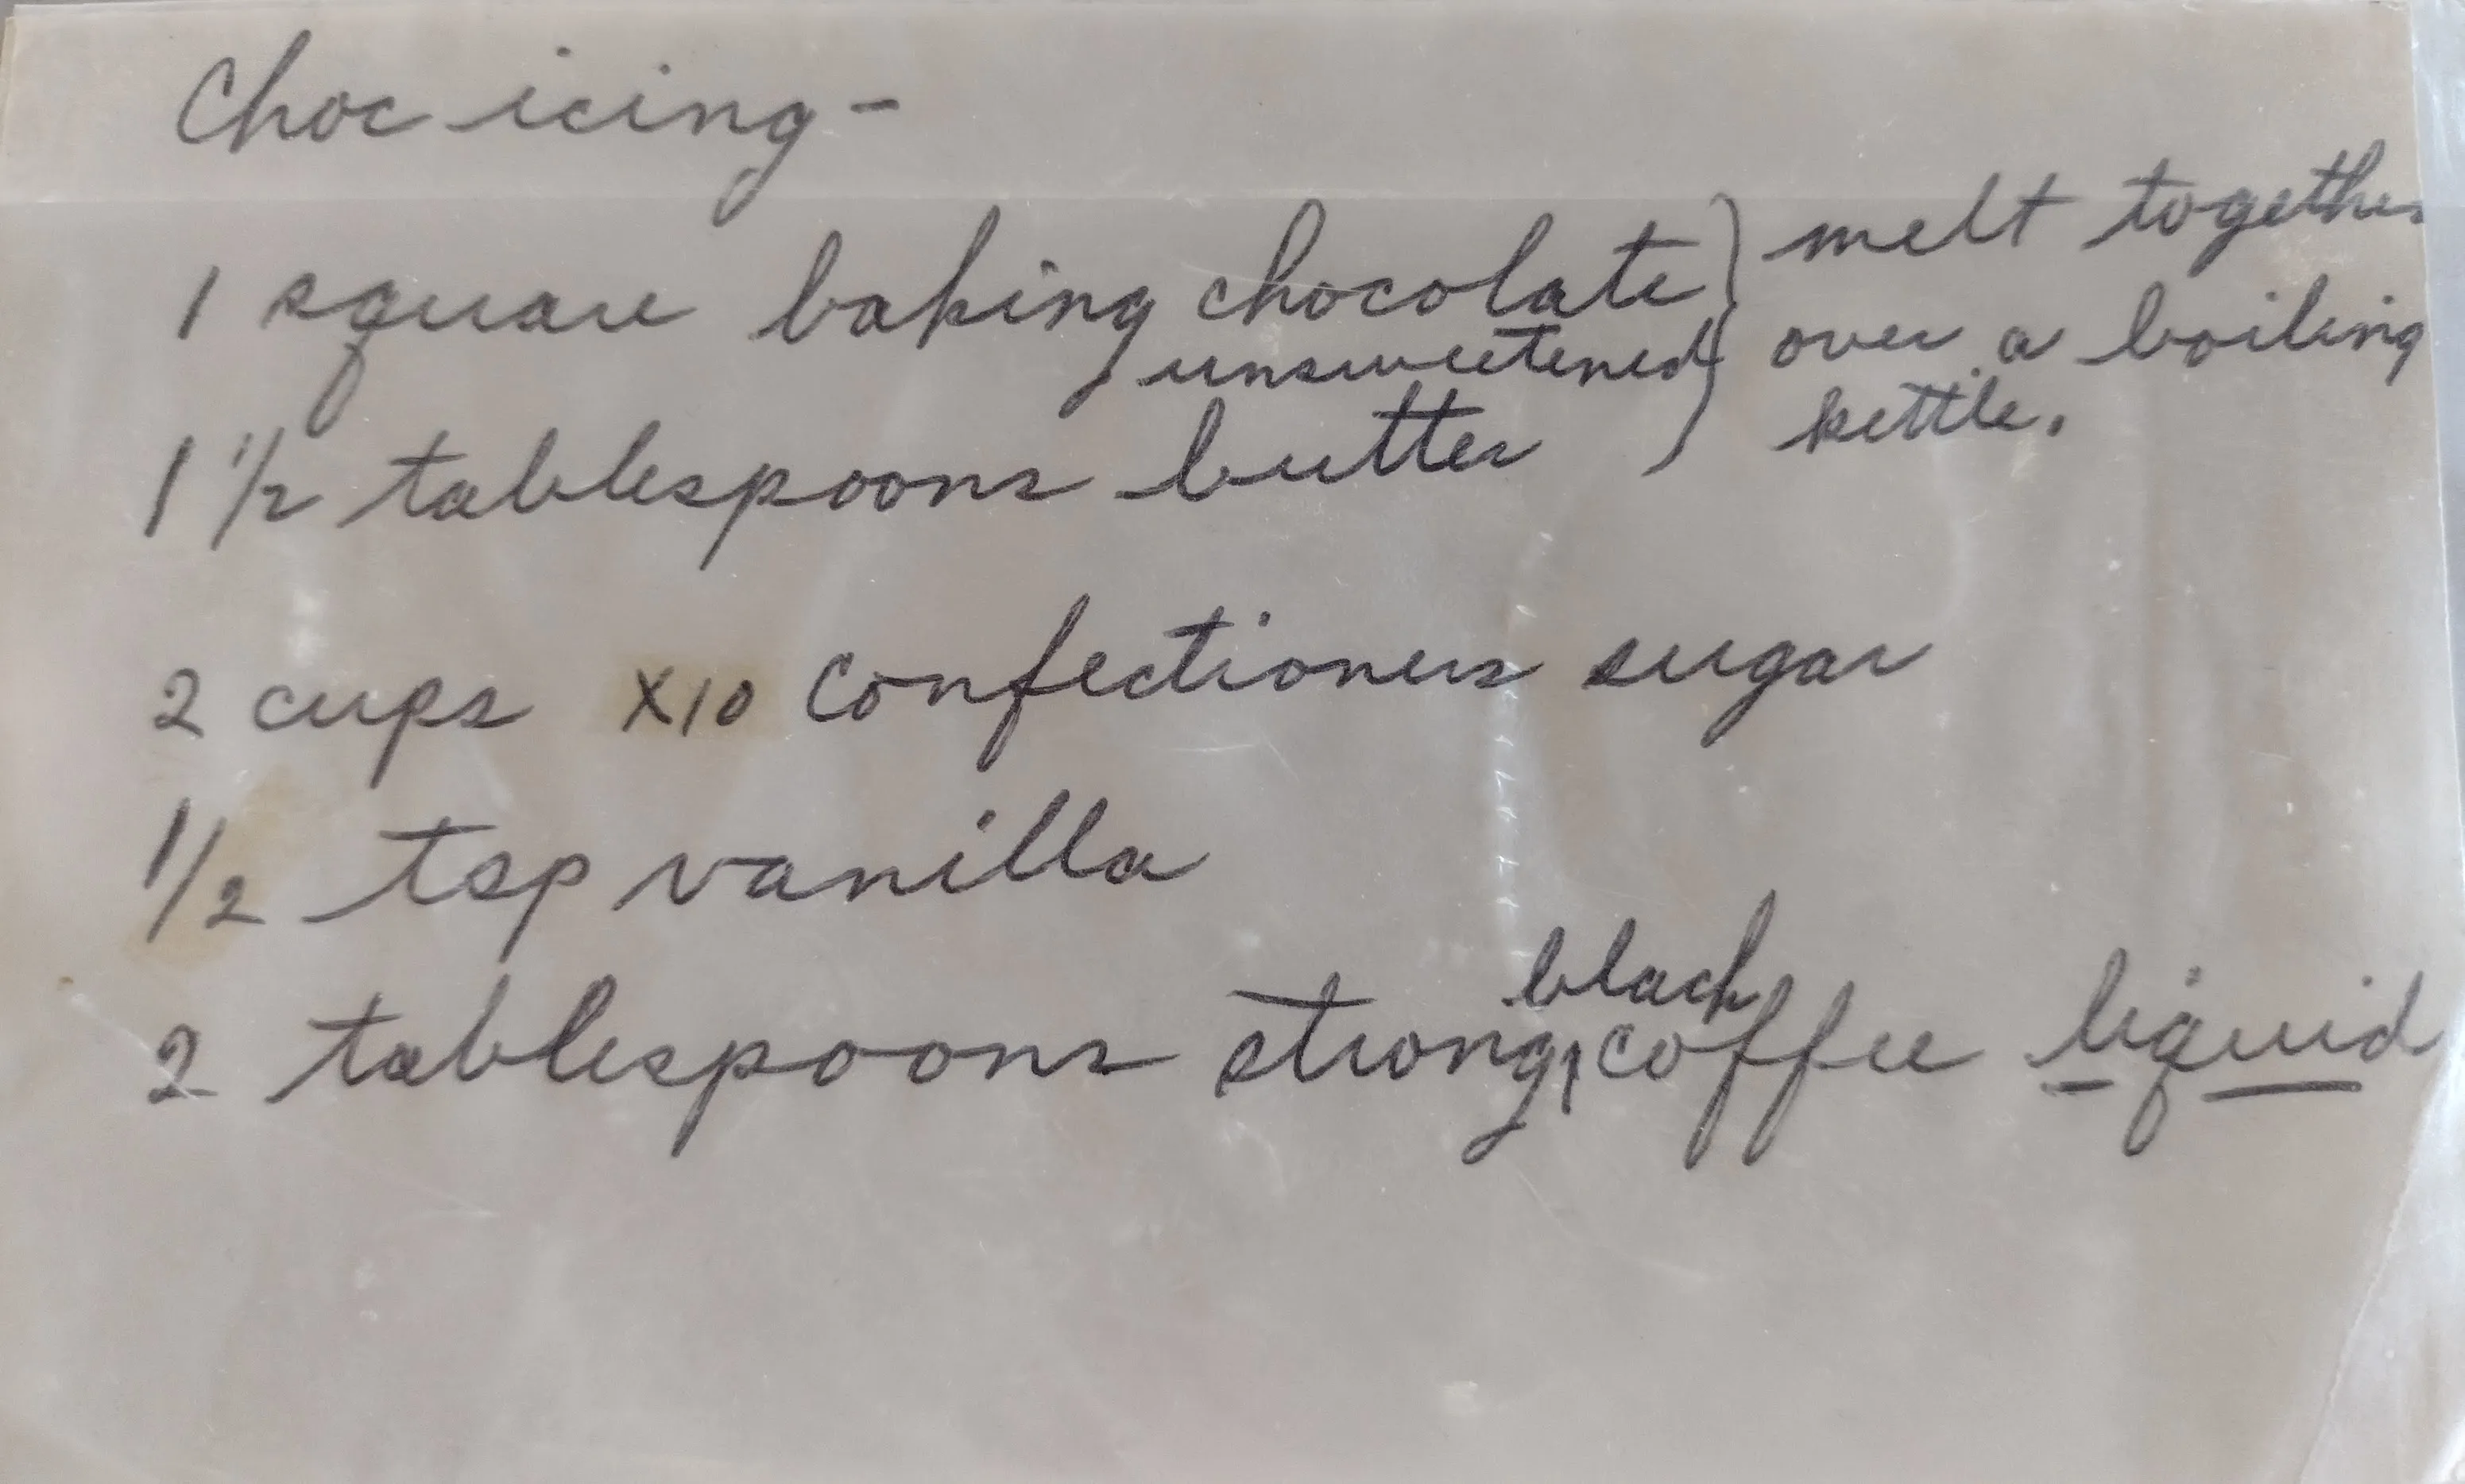 Choc icing -
1 square baking chocolate } melt together
unsweetened over a boiling
1 1/2 tablespoons butter kettle.
2 cups X10 Confectioners sugar
1/2 tsp vanilla
black
2 tablespoons strong coffee liquid